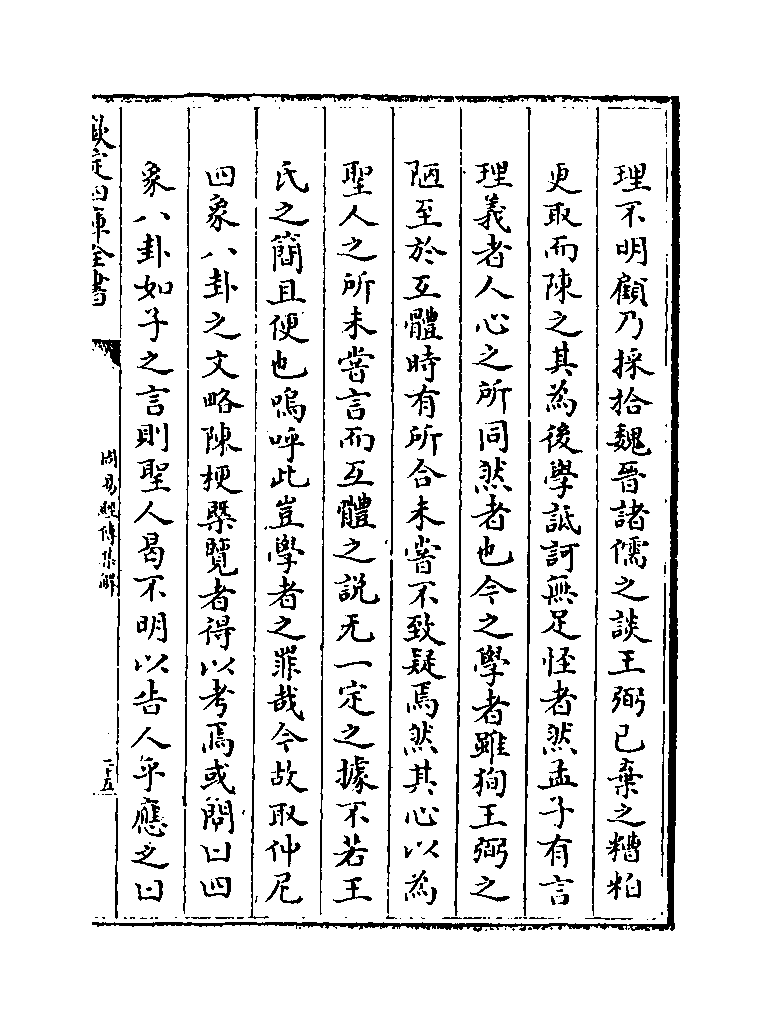 理不明顧乃採拾魏晉諸儒之談王弼已棄之糟粕
更取而陳之其為後學詆訶無足怪者然孟子有言
理義者人心之所同然者也今之學者雖狥王弼之
陋至於互體時有所合未嘗不致疑焉然其心以為
聖人之所未嘗言而互體之說无一定之據不若王
氏之簡且便也嗚呼此豈學者之罪哉今故取仲尼
四象八卦之文略陳梗槩覽者得以考焉或問曰四
象八卦如子之言則聖人曷不明以告人乎應之曰
欽定四庫全書
周易經傳集解
二十五